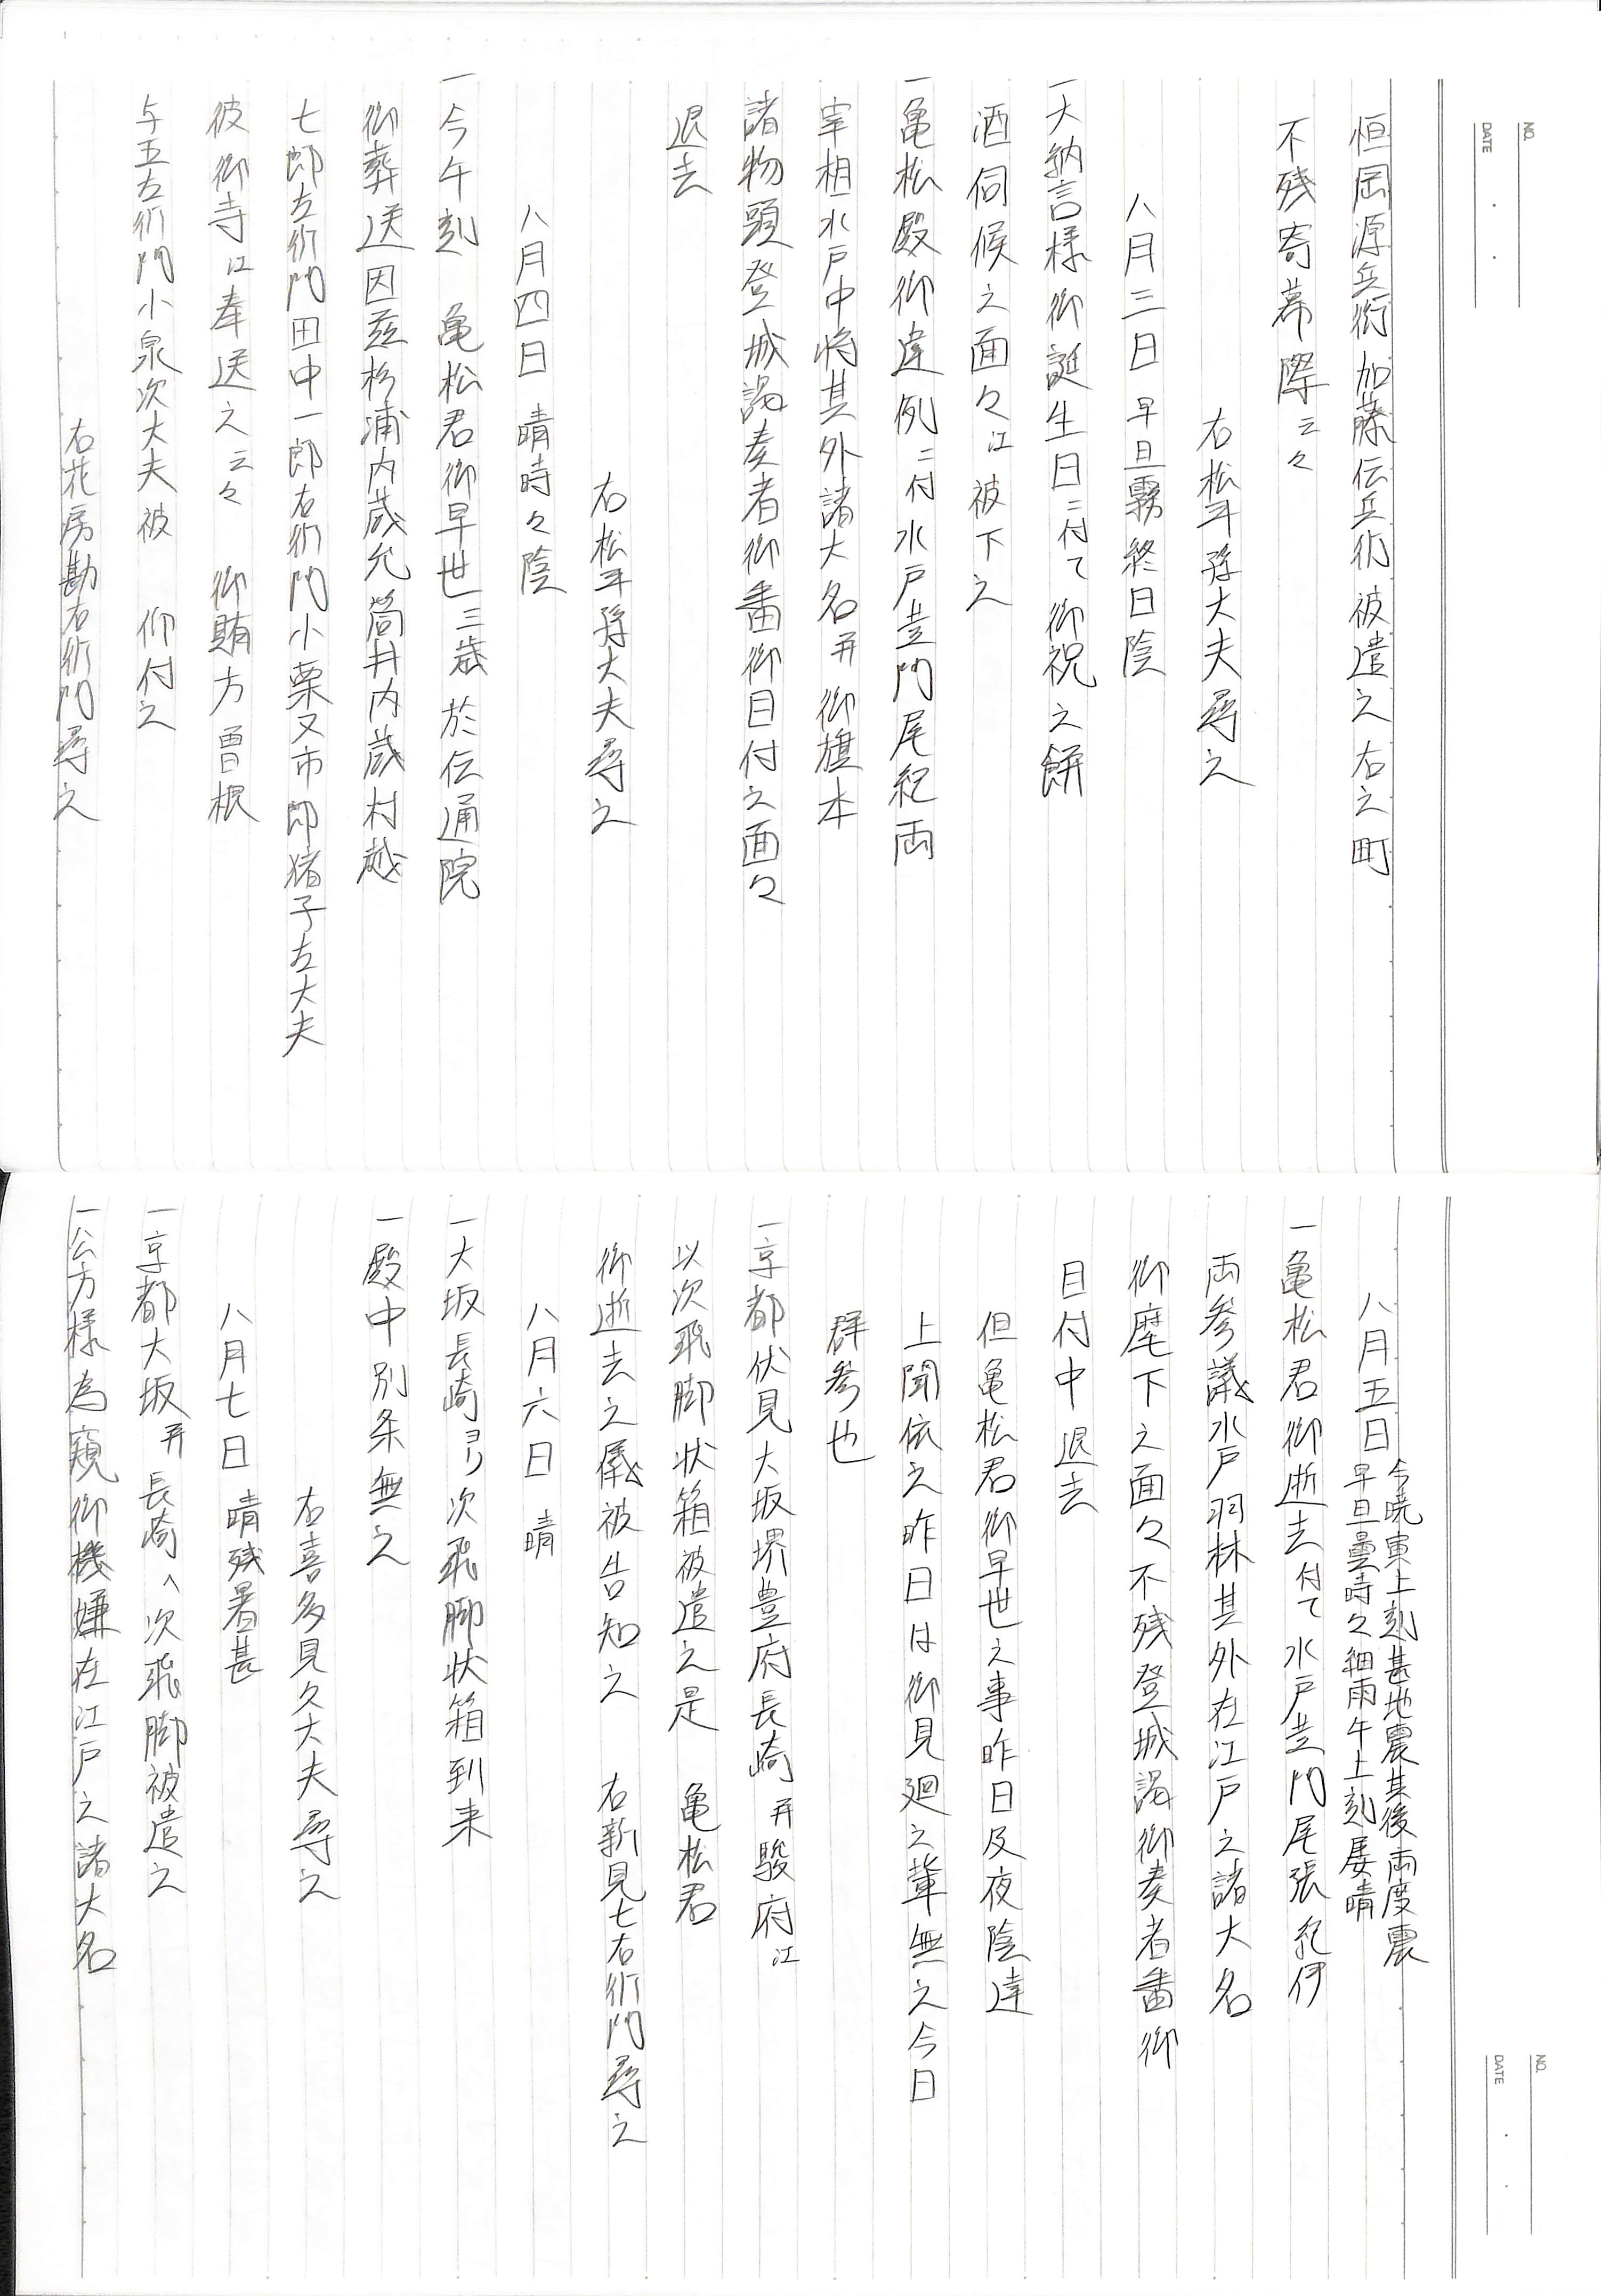 恒岡源兵衛加藤伝兵衛被遣之右之町
不残寄幕際云々
右松平孫大夫尋之
八月三日 早旦霧終日陰
一大納言様御誕生日ニ付て御祝之餅
酒伺候之面々江被下之
一亀松殿御違例ニ付水戸黄門尾紀両
宰相水戸中将其外諸大名并御旗本
諸物頭登城謁奏者御番御目付之面々
退去
右松平孫大夫尋之
八月四日 晴時々陰
一今午刻 亀松君御早世三歳於伝通院
御葬送因茲杉浦内蔵允筒井内蔵村越
七郎左衛門田中一郎右衛門小栗又市郎猪子左大夫
彼御寺江奉送之云々 御賄方曽根
与五左衛門小泉次大夫被 仰付之
右花房勘右衛門尋之
NO.
DATE
八月五日 今暁東上刻甚地震其後両度震
早旦曇時々細雨午上刻属晴
一亀松君御逝去付て水戸黄門尾張紀伊
両参議水戸羽林其外在江戸之諸大名
御麾下之面々不残登城謁御奏者番御
目付中退去
但亀松君御早世之事昨日及夜陰達
上聞依之昨日は御見廻之輩無之今日
群参也
一京都伏見大坂堺豊府長崎并駿府江
以次飛脚状箱被遣之是 亀松君
御逝去之儀被告知之 右新見七右衛門尋之
八月六日 晴
一大坂長崎ヨリ次飛脚状箱到来
一殿中別条無之
右喜多見久大夫尋之
八月七日 晴残暑甚
一京都大坂并長崎へ次飛脚被遣之
一公方様為窺御機嫌在江戸之諸大名
NO.
DATE